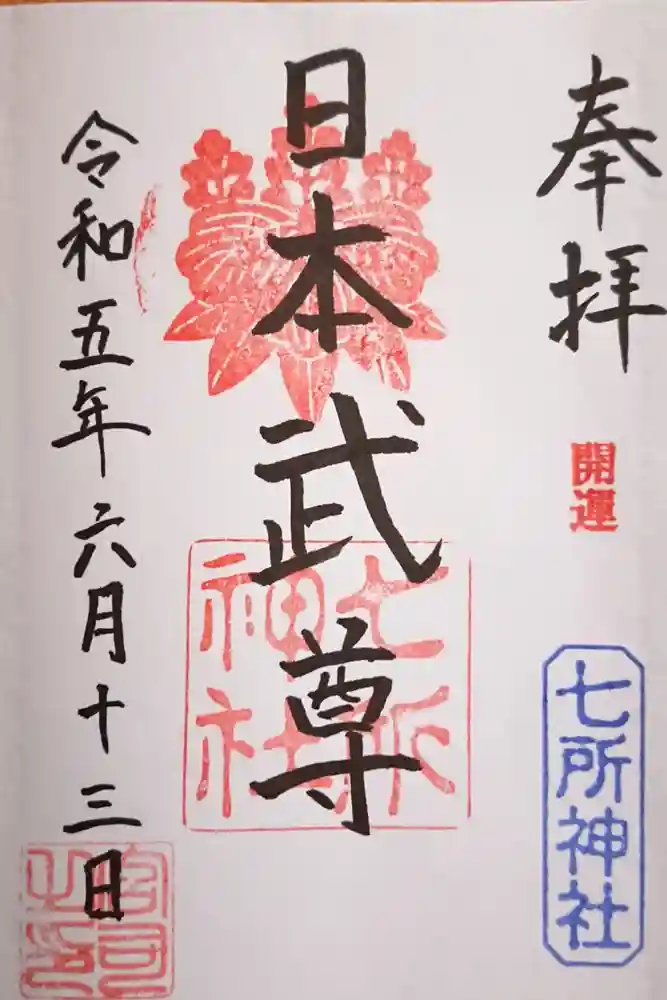 奉拝
開運
七所神社
日本武尊
七所神社
令和五年六月十三日
宮司之印